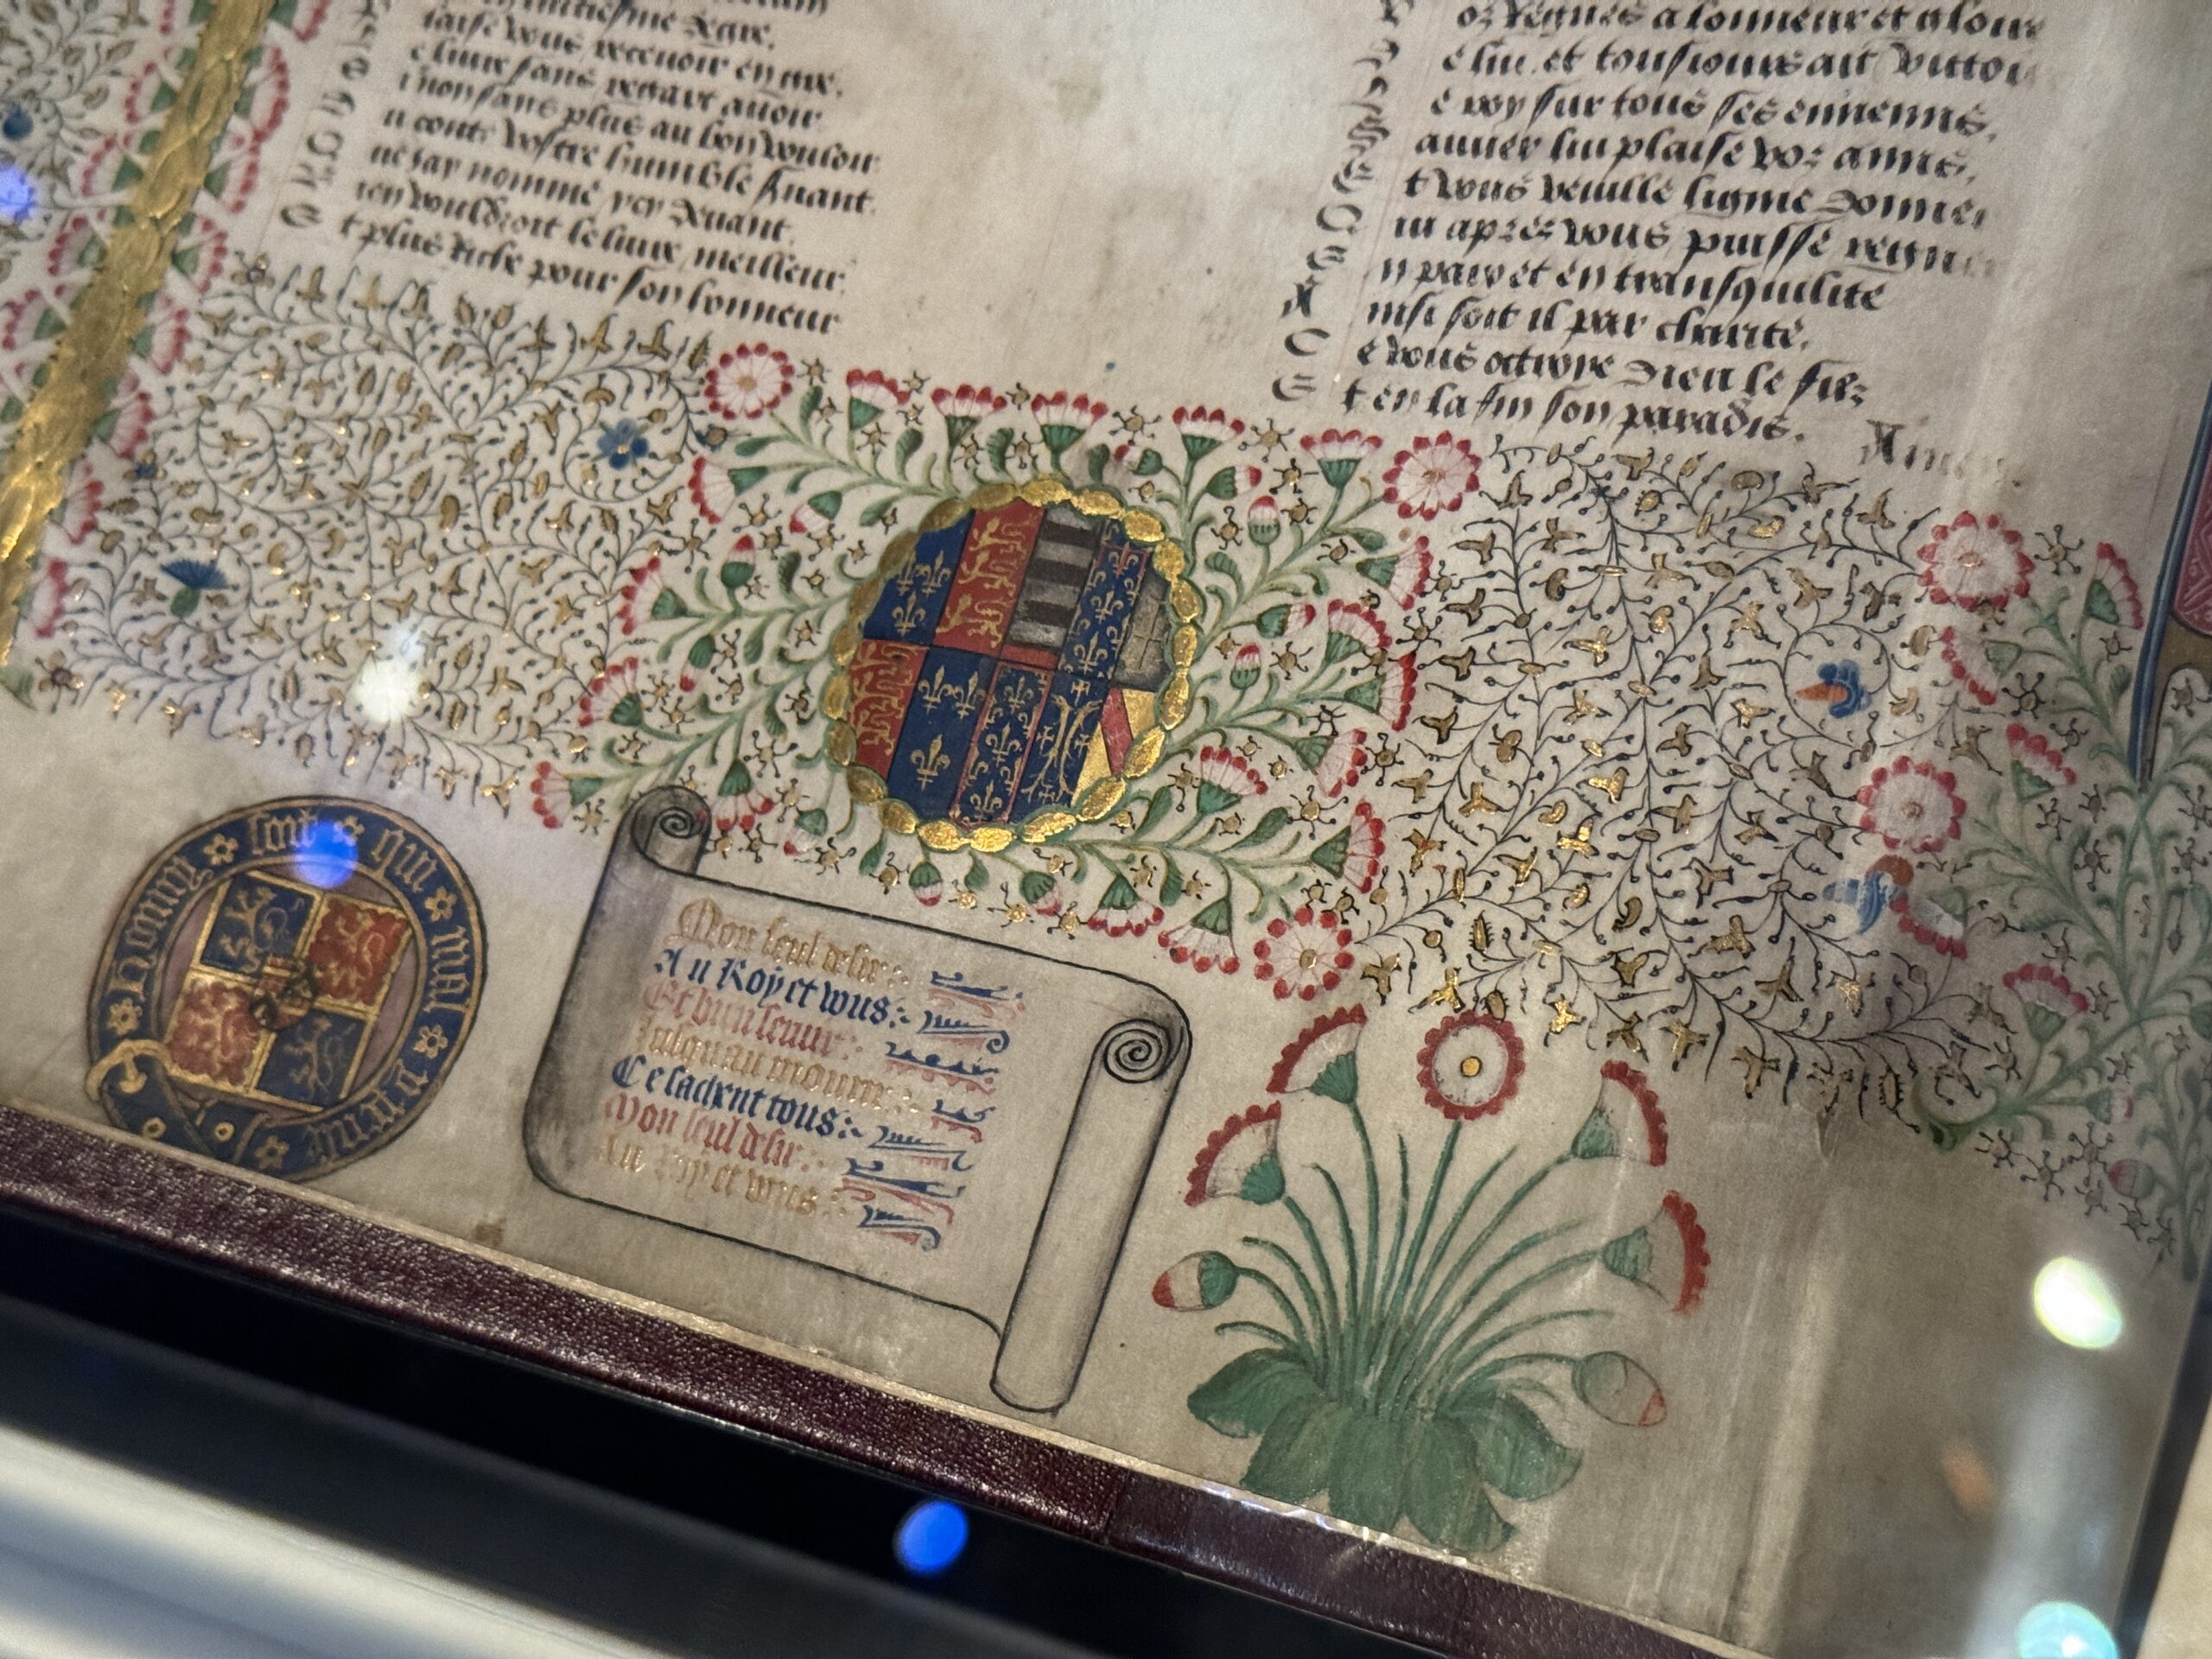 aise vous recevoir en gre,
e livre sans regart avoir
i non sans plus au bon vouloir
u conte vostre humble svant.
ue jay nomme icy devant.
ien vouldroit le livre meilleur
E t plus riche pour son honneur
regnes a lonneur et a
e lui et tousiours ait
e roy sur tous ses ennemis,
lui plaise voz amis,
E t vous veuille ligne donner
Q ui aprez vous puisse
E n paix et en transquilite
A insi soit il par charite,
C e vous octroye dieu le filz
E t en la fin son paradis.
Honny soit qui mal y pense
Mon seul desir
Au Roy et vous
Et bien servir
Jusquau mourir
Ce sachent tous
Mon seul desir
Au Roy et vous